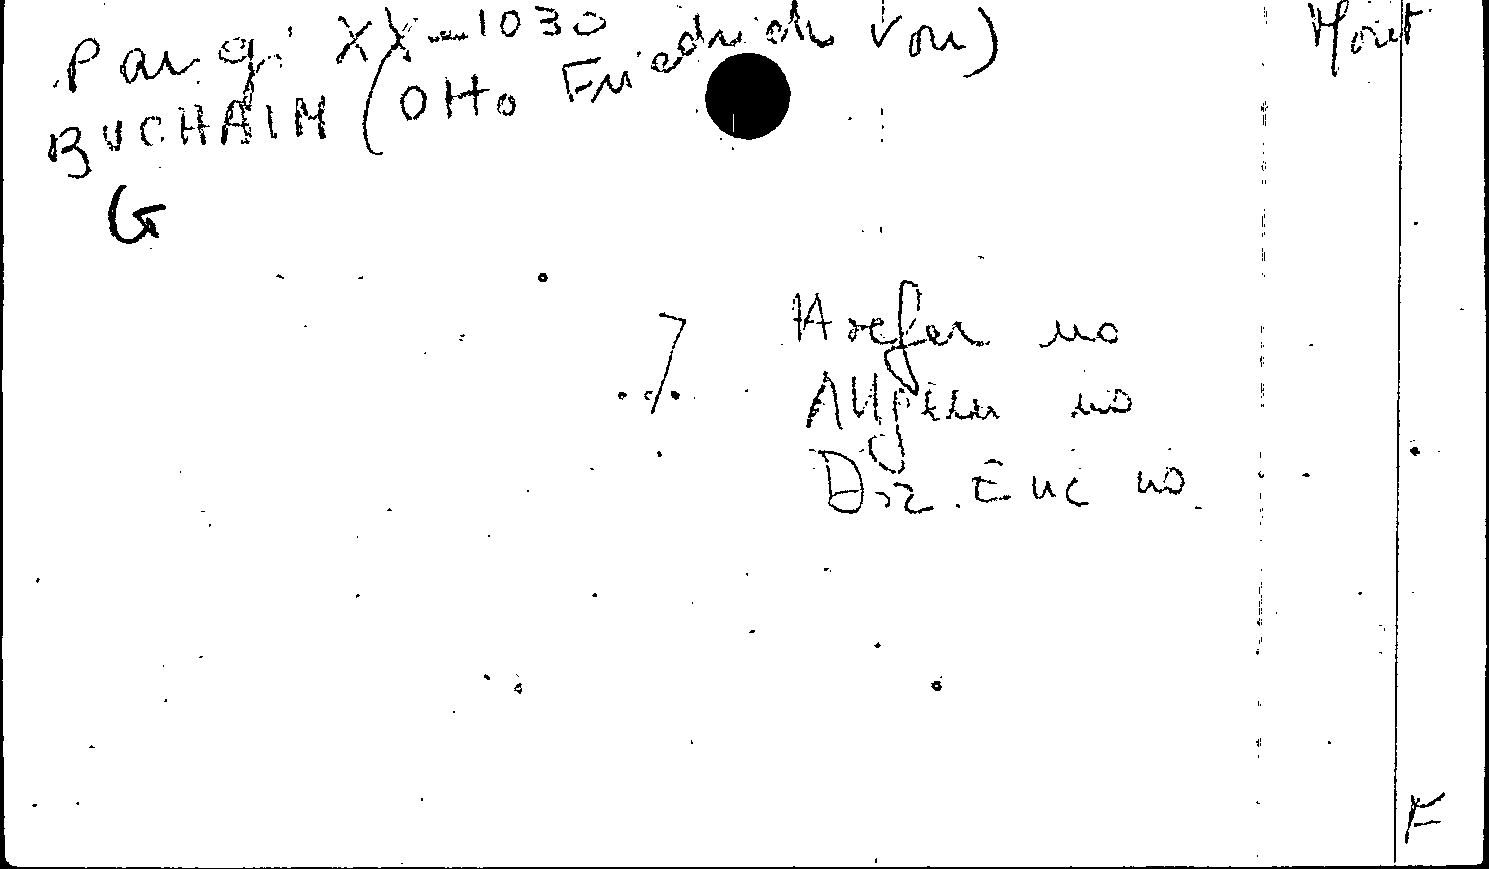 Pangi XX-1030
BUCHAIM (Otto Friedrich von)
G
./.
Hoefer no
Allgem no
Diz. Enc no.
F